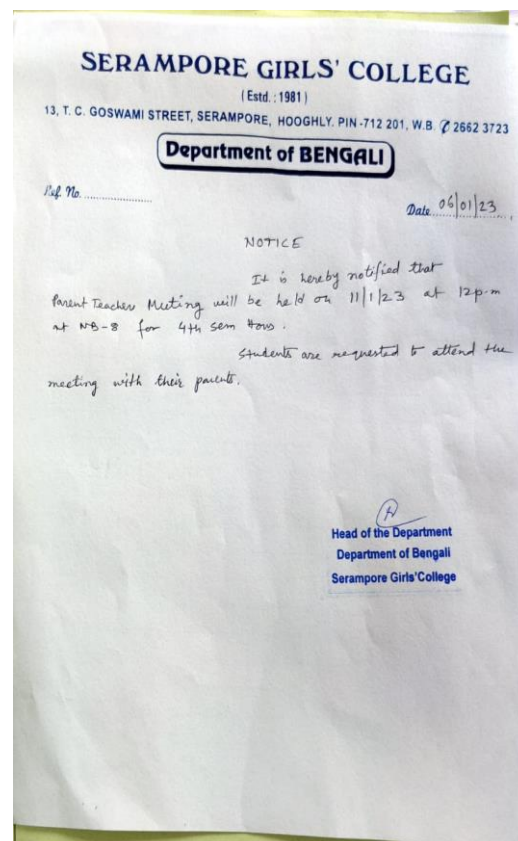 SERAMPORE GIRLS' COLLEGE
(Estd.: 1981)
13, T. C. GOSWAMI STREET, SERAMPORE, HOOGHLY. PIN-712 201, W.B. ✆ 2662 3723
Department of BENGALI
Ref. No.....................
Date 06/01/23
NOTICE
It is hereby notified that
Parent Teacher Meeting will be held on 11/1/23 at 12p.m
at NB-8 for 4th sem Hons.
Students are requested to attend the
meeting with their parents.
Head of the Department
Department of Bengali
Serampore Girls'College